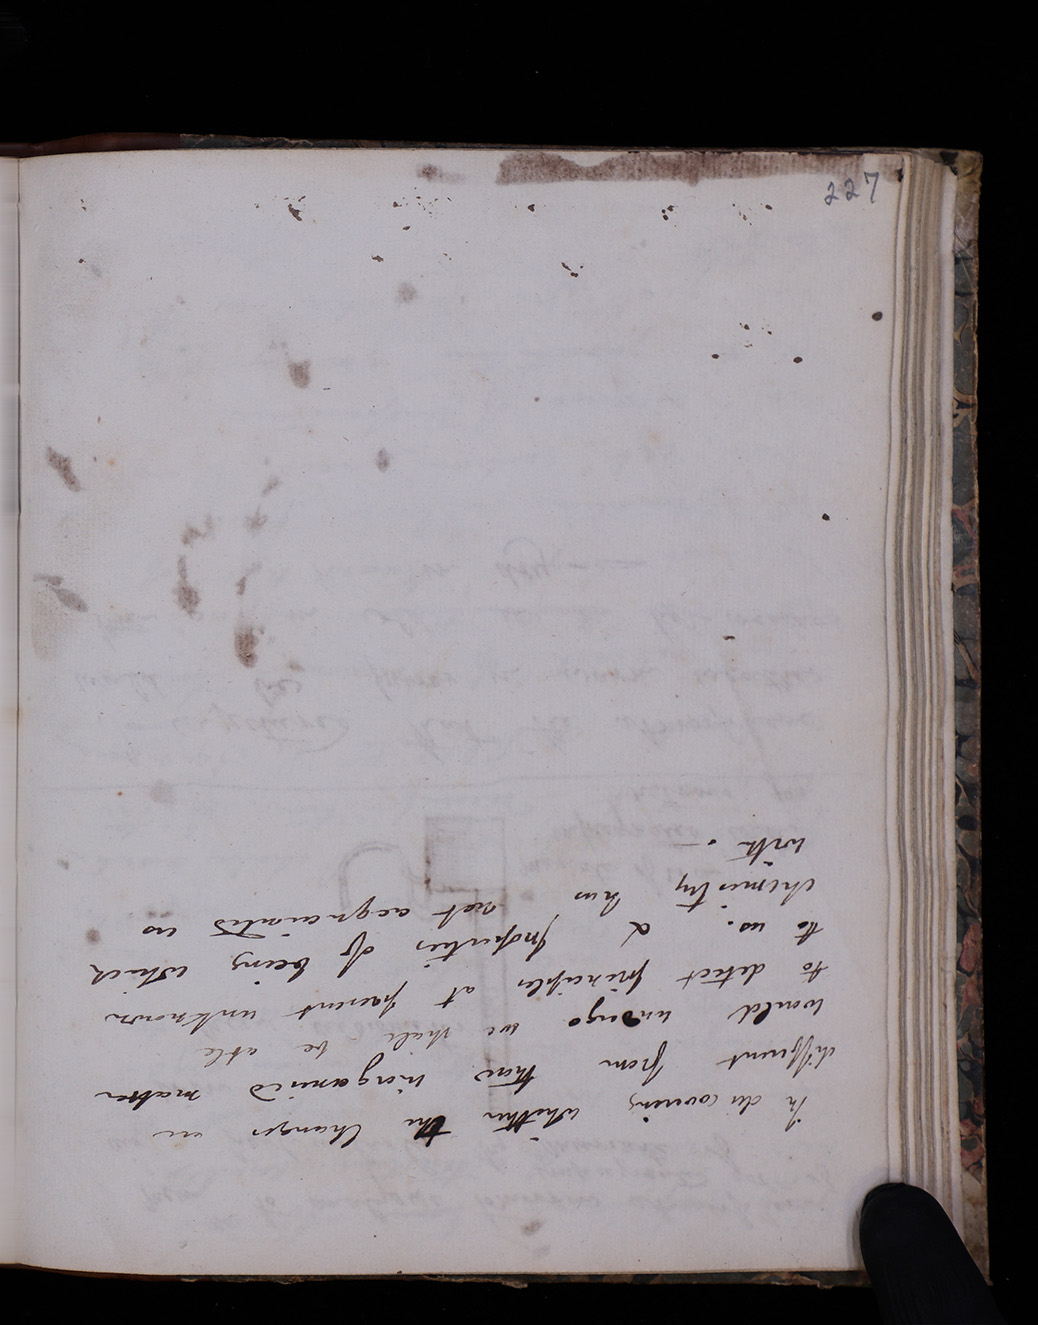 227
In discovering whether the Changes are
different from thos inorganised matter
would undergo we shall be able
to detect principles at present unknown
to us. & properties of being which
chemistry has not acquainted us
with. —